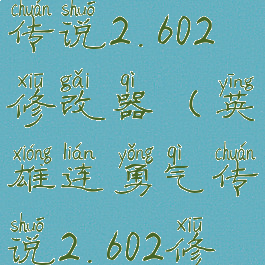 chuán shuō
传说2.602
xiū gǎi qì yīng
修改器（英
xióng lián yǒng qì chuán
雄连勇气传
shuō xiū
说2.602修